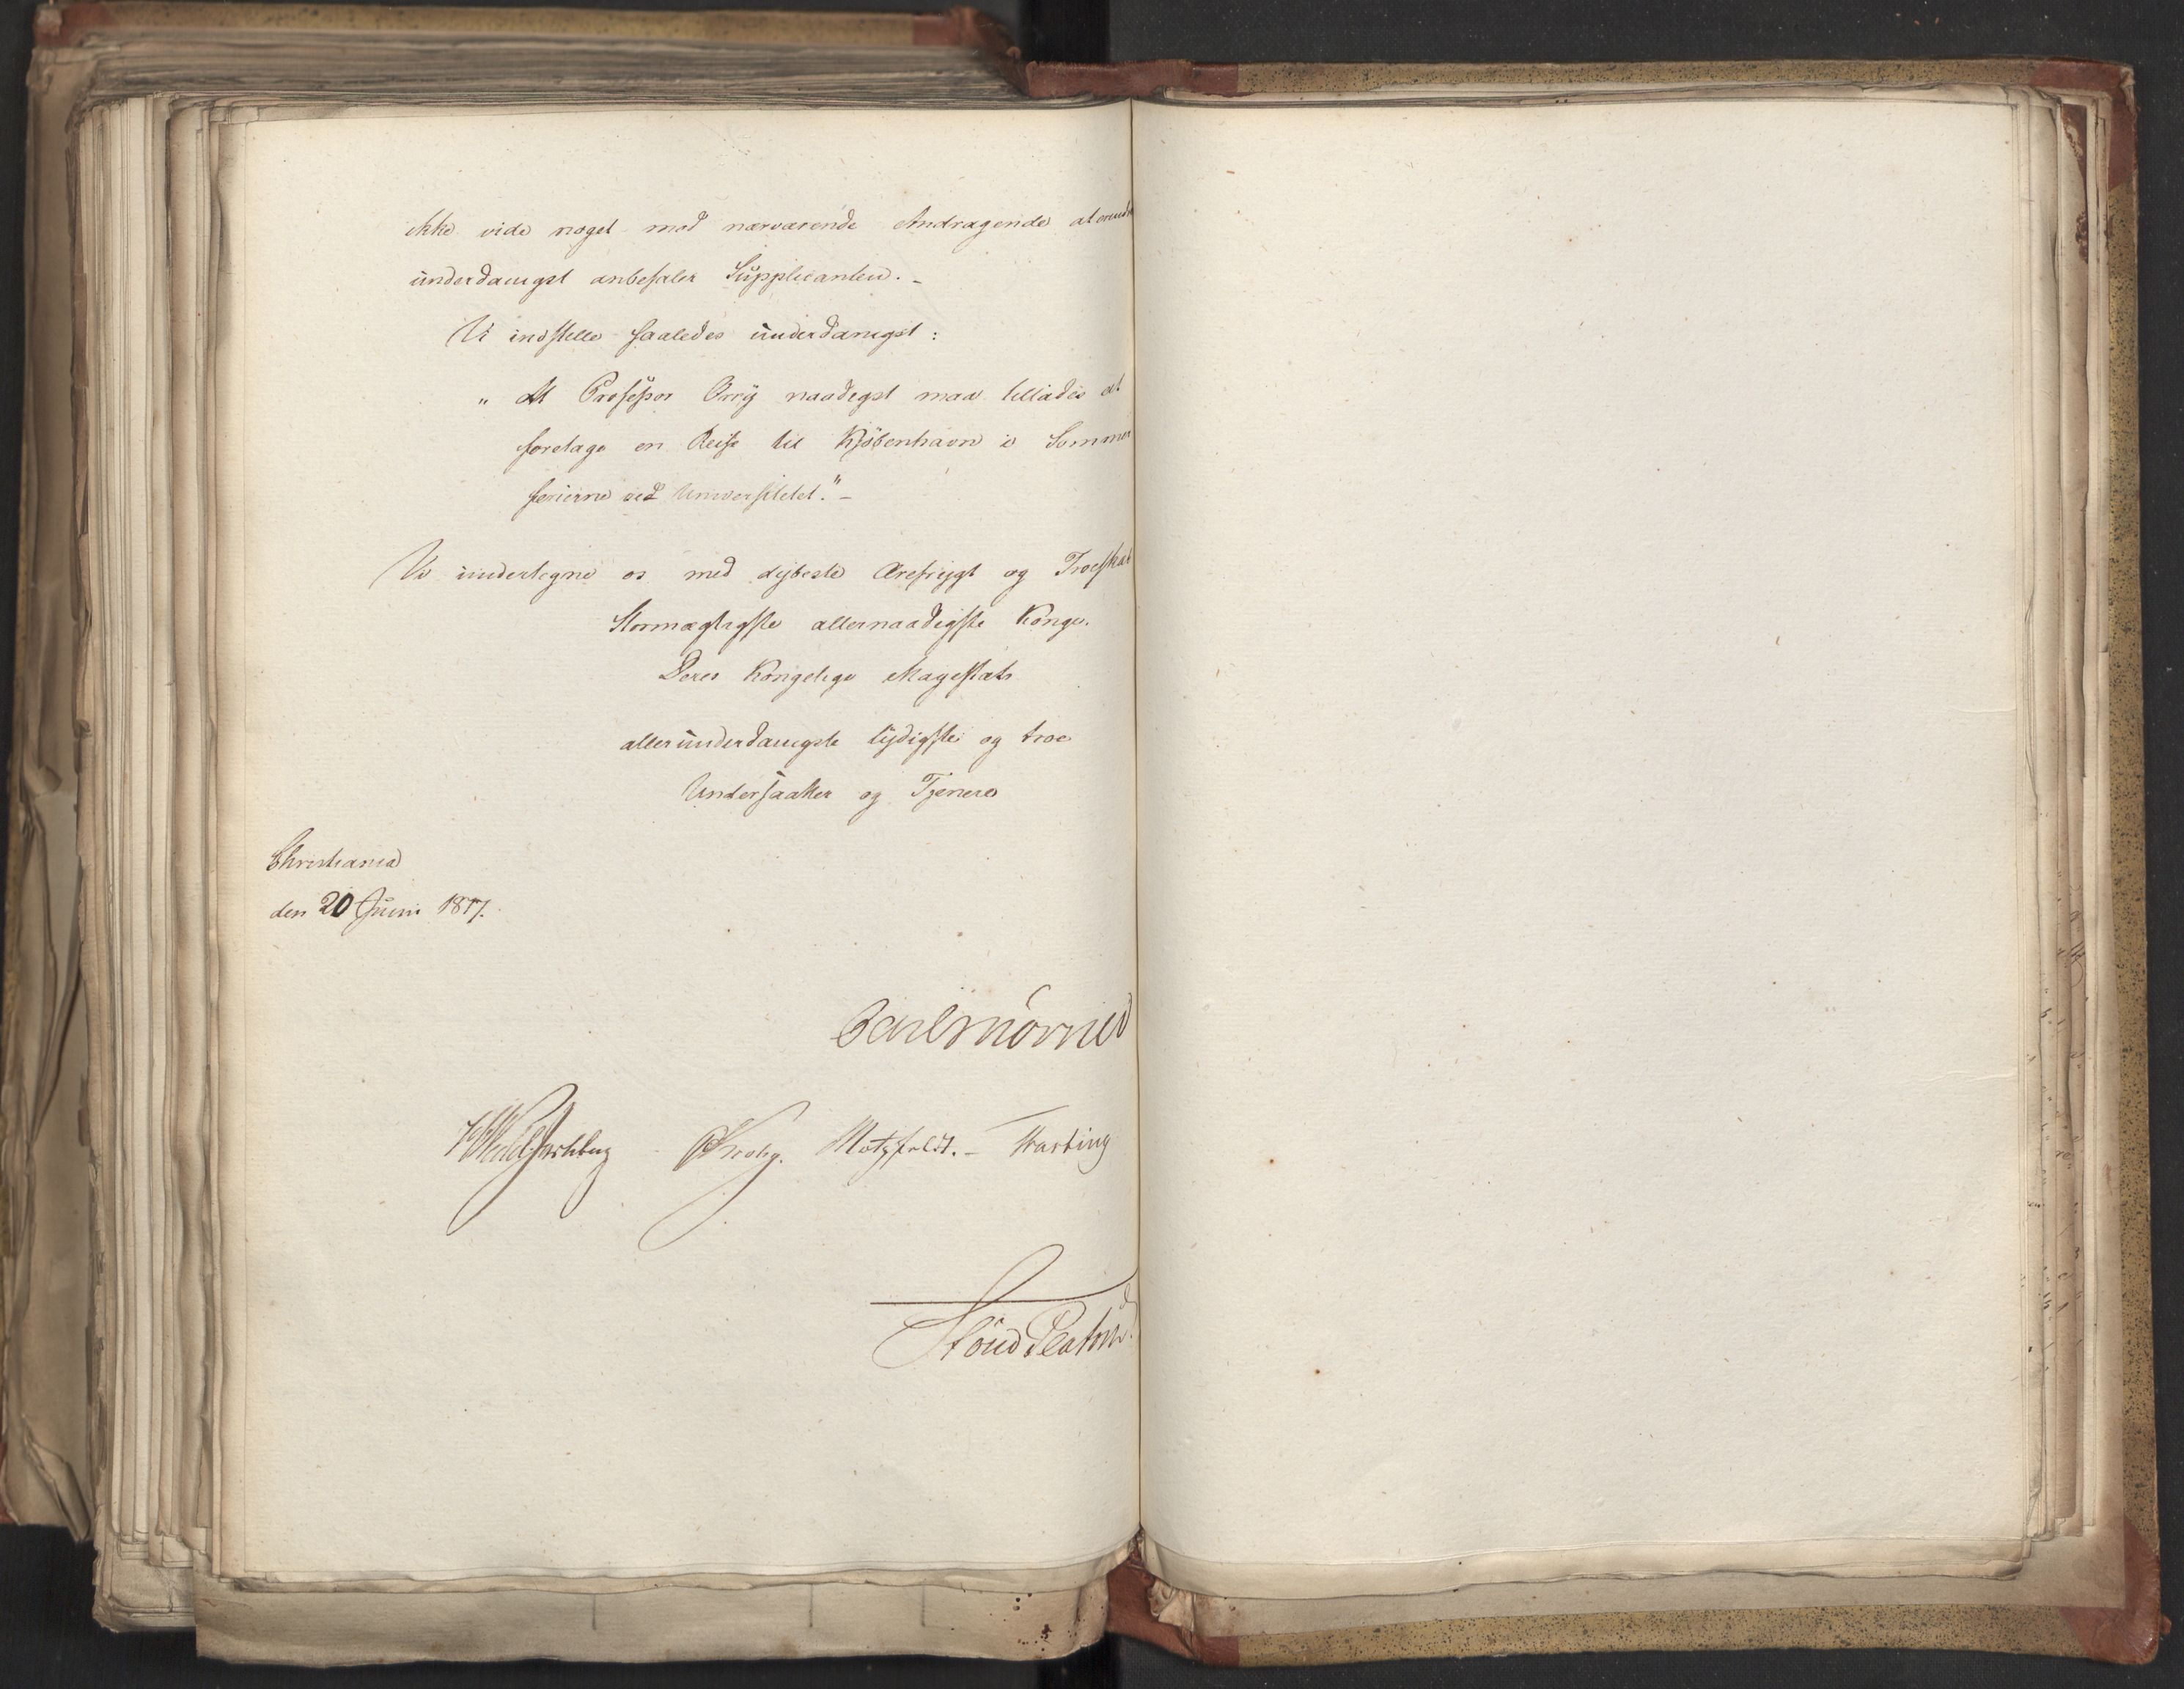 ikke vide noget mod nærværende Andragende at erindre
underdanigst anbefaler Supplicanten. _
Vi indstille saaledes underdanigst:
" At Professor Orry naadigst maa tillades at
foretage en Reise til Kjöbenhavn i Sommer
ferierne ved Universitetet." _
Vi undertegne os med dybeste Ærefrygt og Troeskab
Stormægtigste allernaadigste Konge.
Deres Kongelige Magestæts
allerunderdanigste lydigste og troe
Undersaatter og Tjenere
Christiania
den 20 Juni 1817.
Carl Mörner
Krohg. Motzfeldt. _